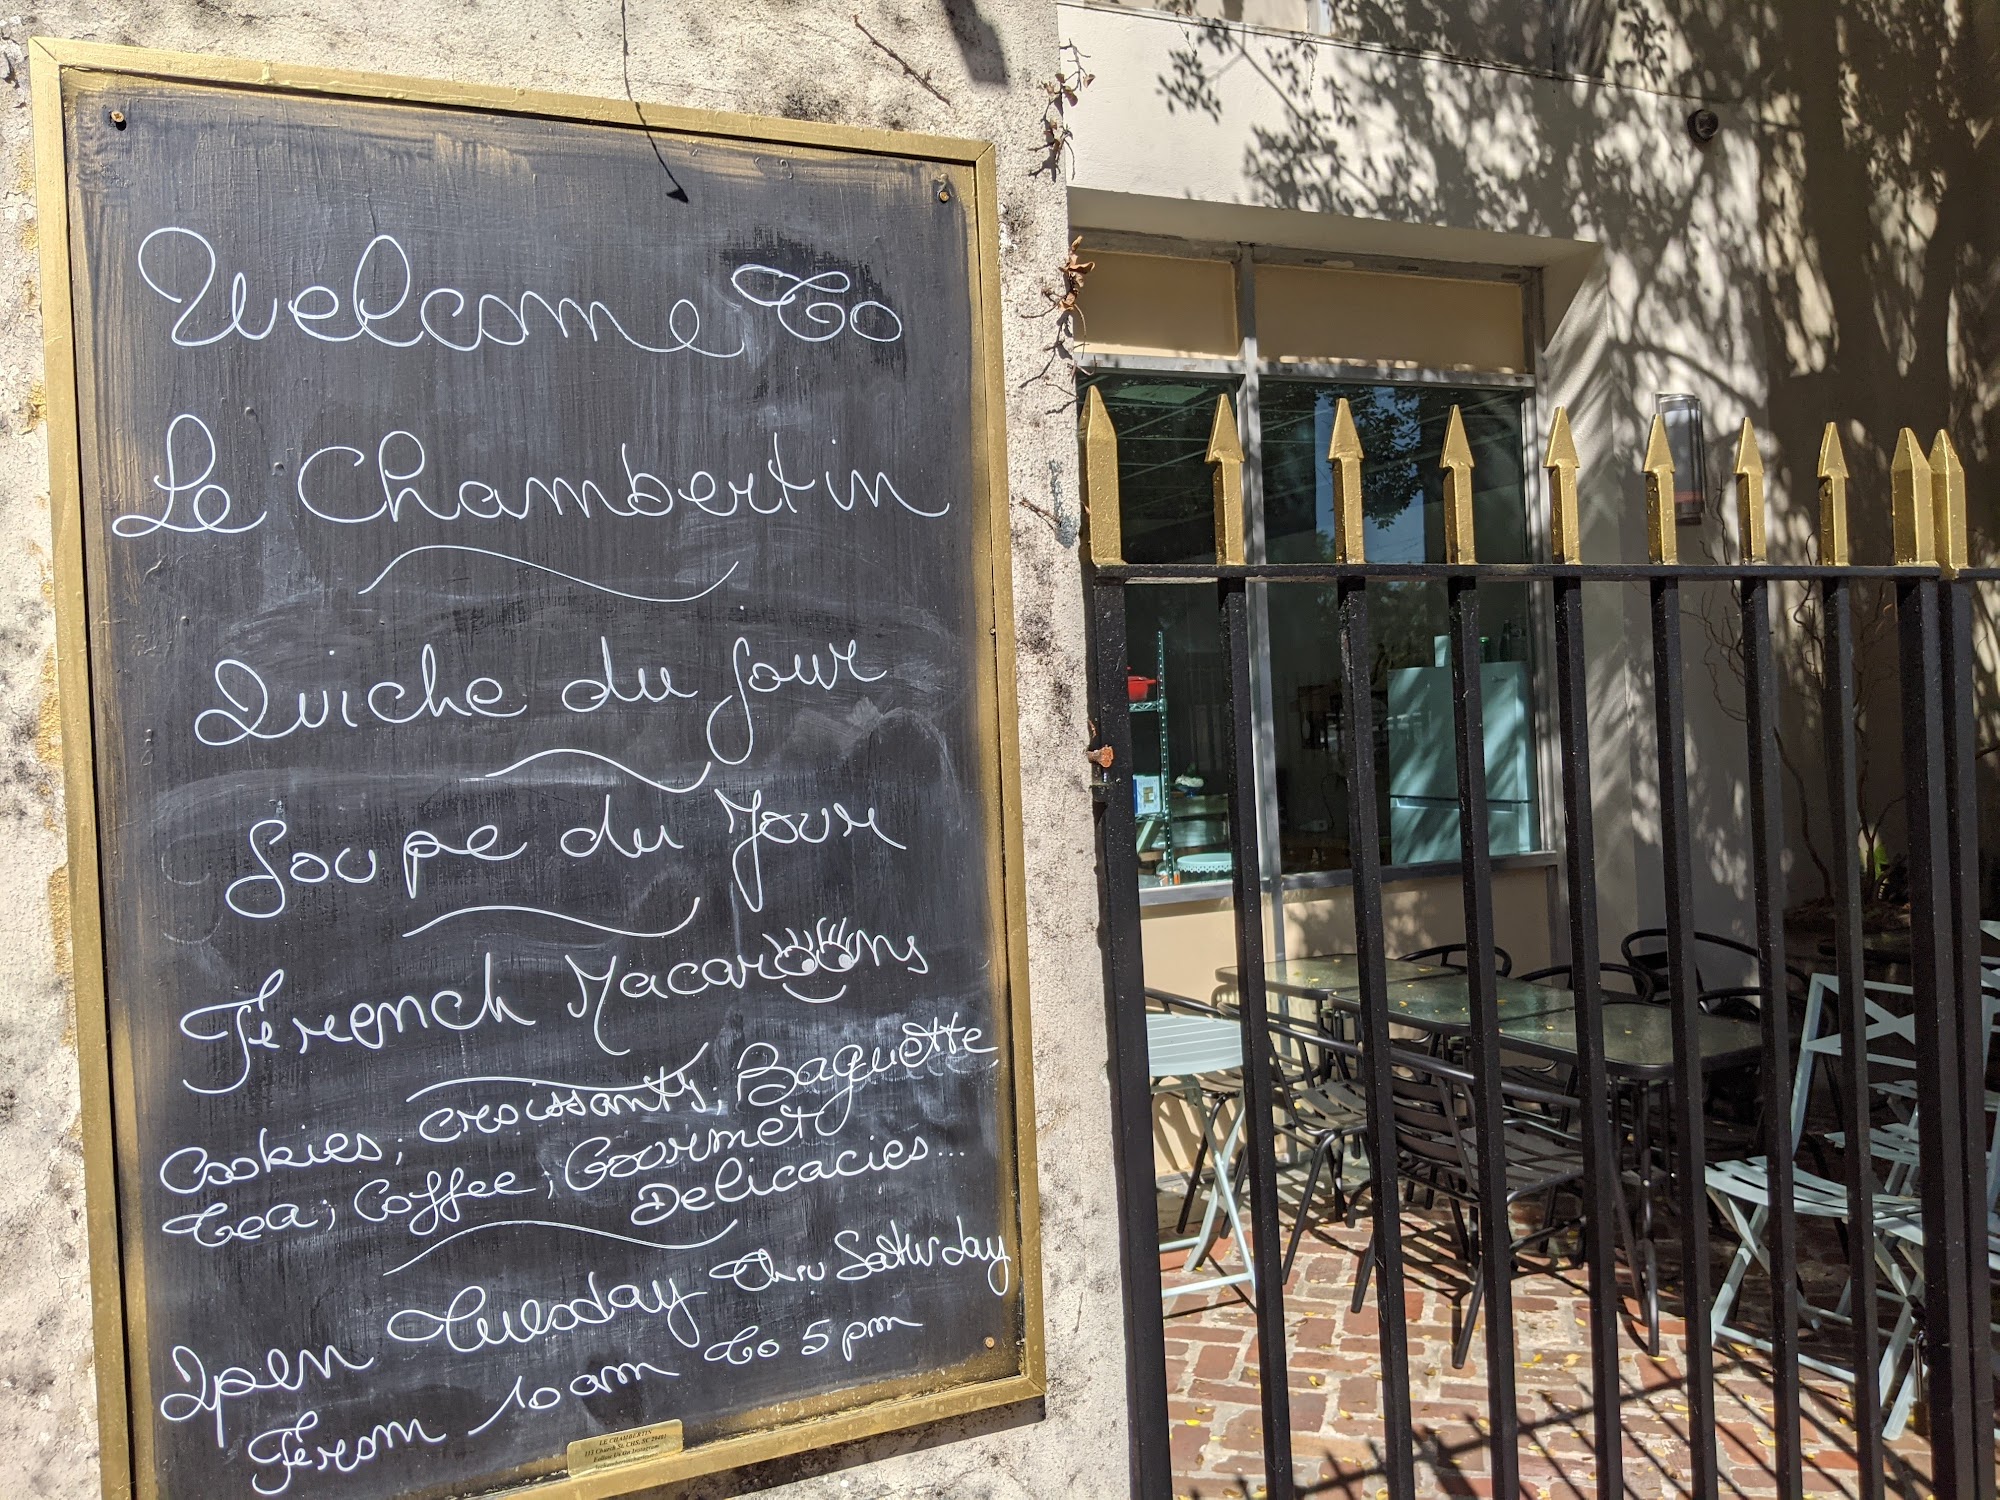 Welcome To
Le Chambertin
Quiche du jour
Soupe du Jour
French Macaroons
Cookies; croissants; Baguette
Tea; Coffee; Gourmet
Delicacies...
Open Tuesday Thru Saturday
From 10 am To 5 pm
LE CHAMBERTIN
Church St. CHS, SC 29401
Follow Us On Instagram